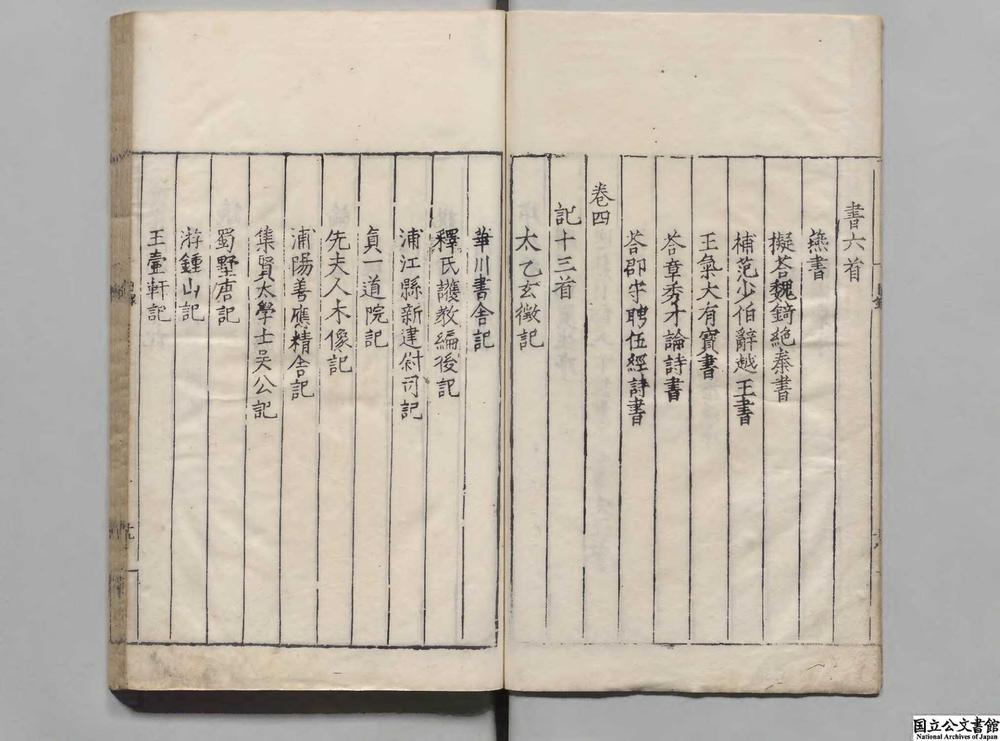 書六首
燕書
擬荅魏錡絶秦書
補范少伯辭越王書
王氣大有寳書
荅章秀才論詩書
荅郡守聘伍經詩書
卷四
記十三首
太乙玄徵記
華川書舍記
釋氏護教編後記
浦江縣新建尉司記
貞一道院記
先夫人木像記
浦陽善應精舍記
集賢大學士吳公記
蜀墅唐記
游鍾山記
王臺軒記
国立公文書館
National Archives of Japan